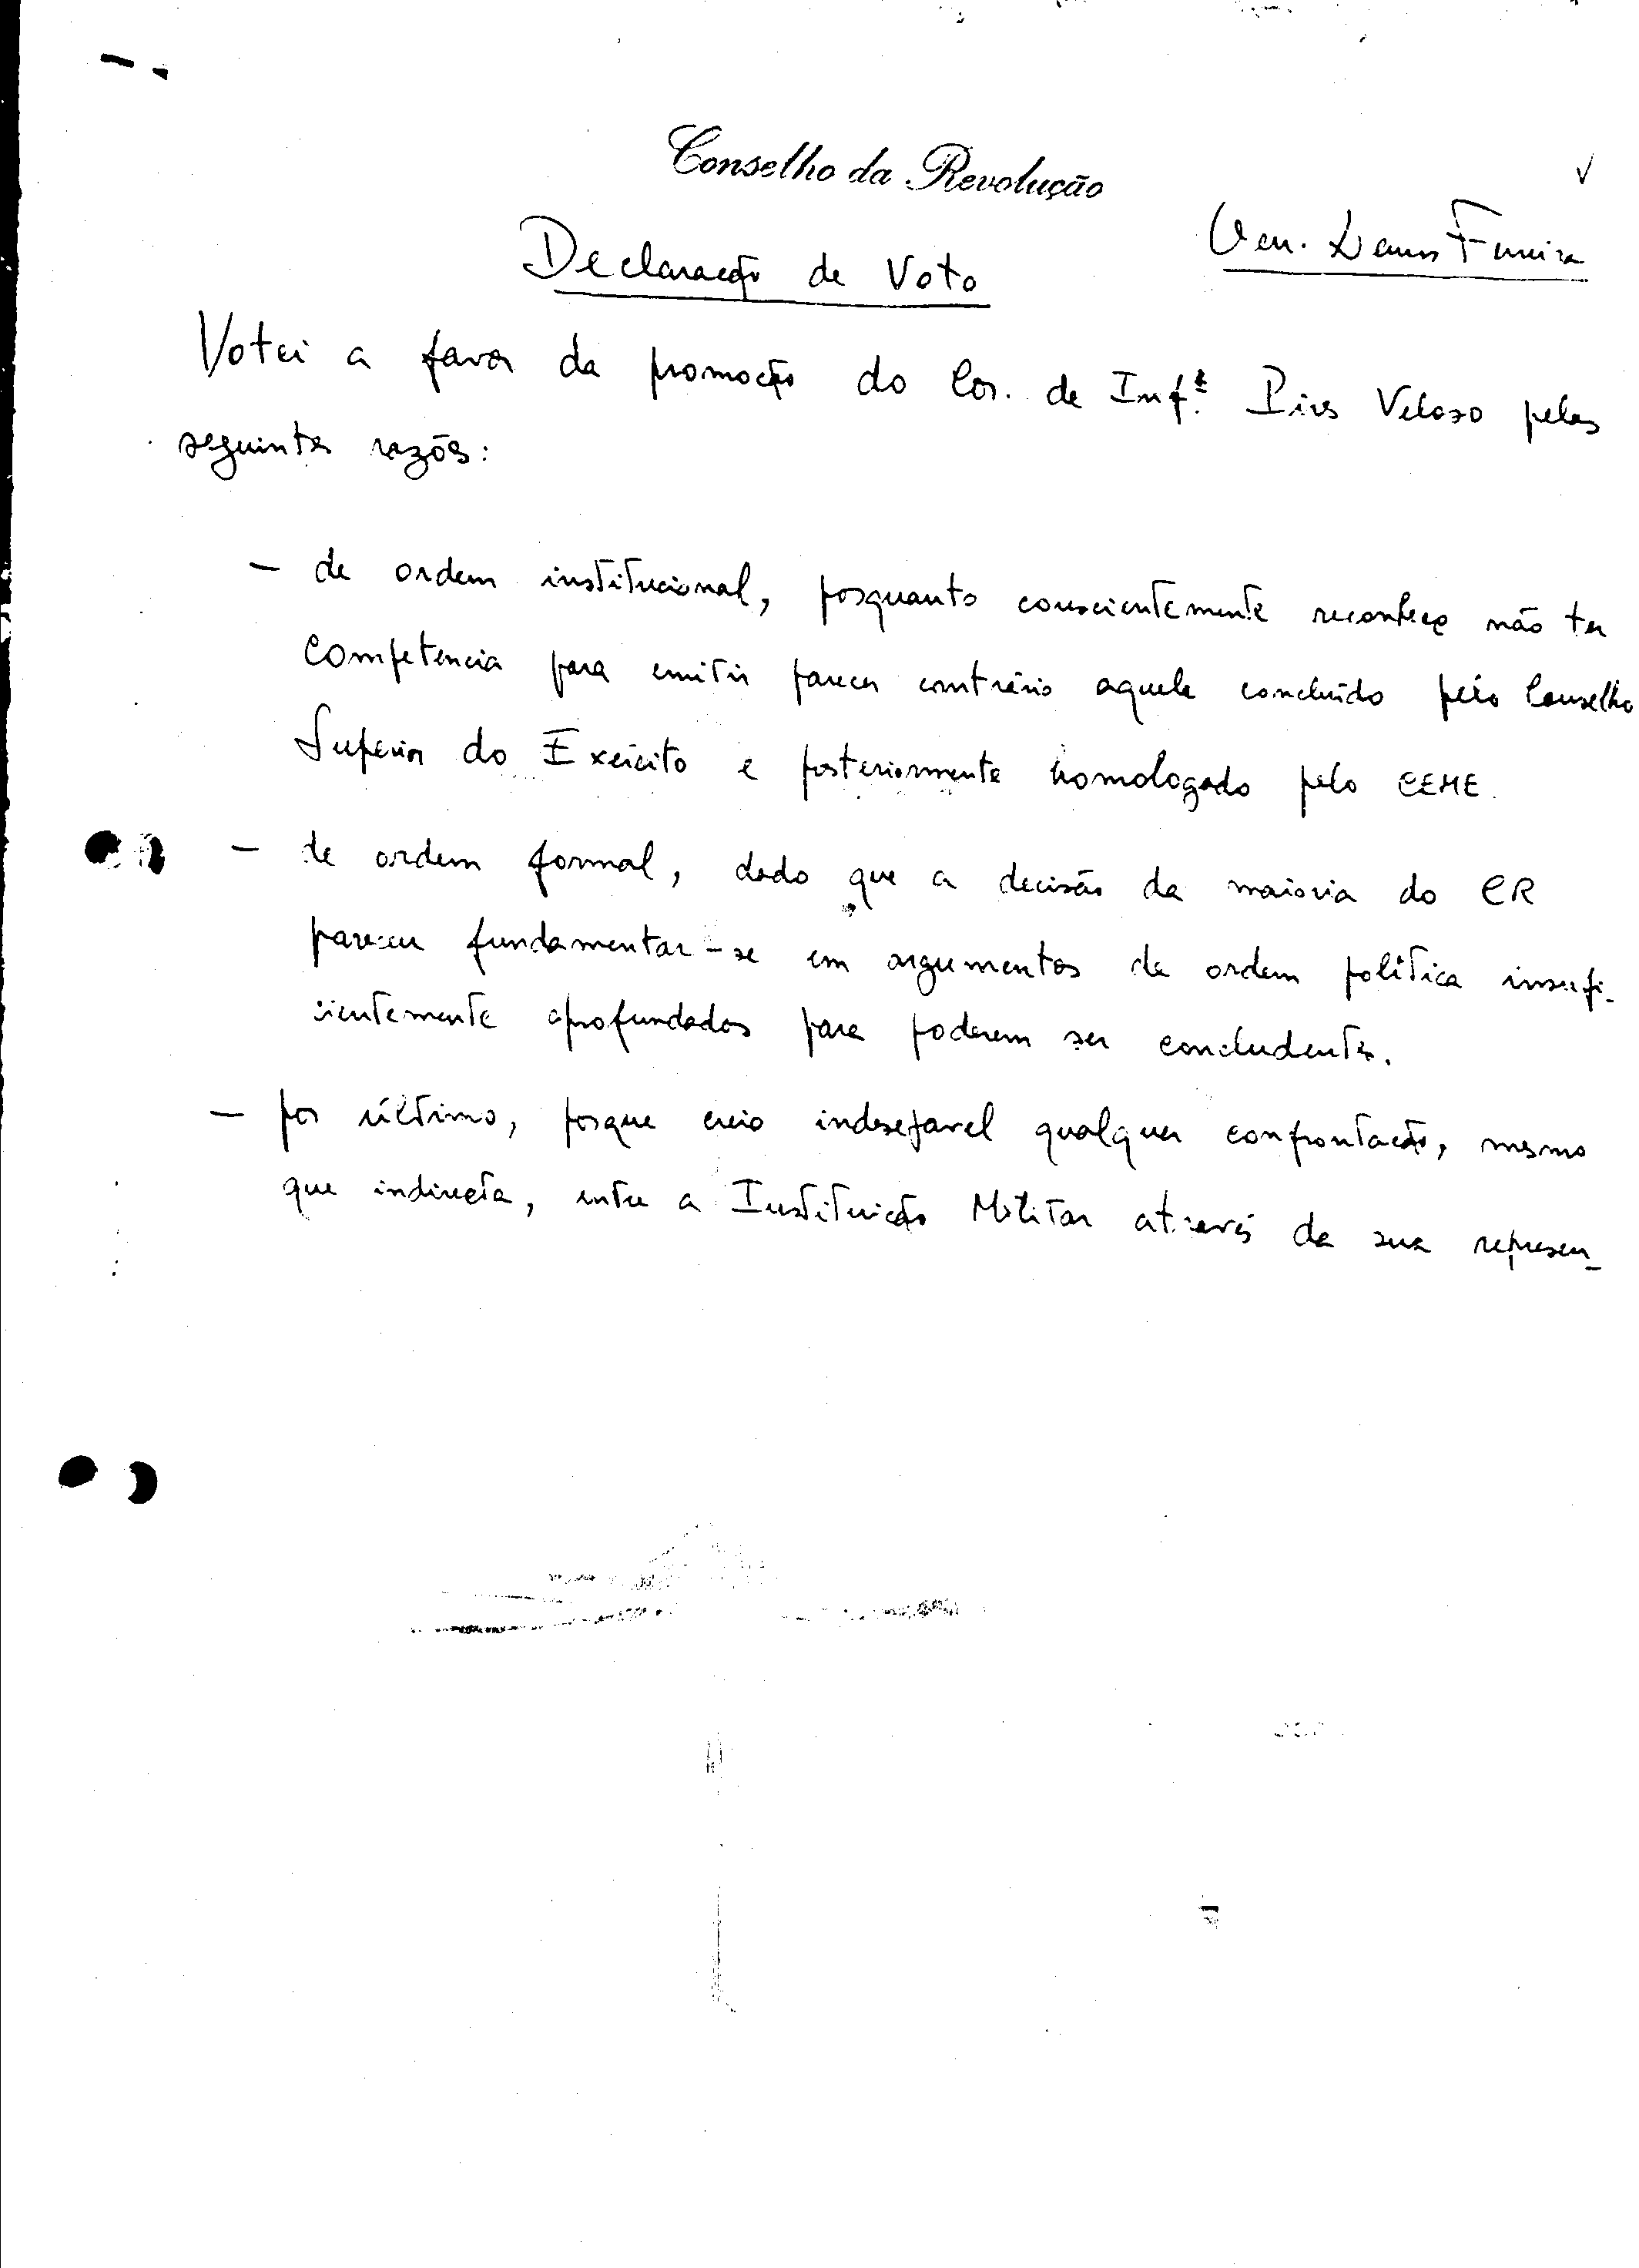 Conselho da Revolução
Gen. Lemos Ferreira
Declaração de Voto
Votei a favor da promoção do Cor. de Infª. Pires Veloso pelas
seguintes razões:
– de ordem institucional, porquanto conscientemente reconheço não ter
competencia para emitir parecer contrário aquele concluído pelo Conselho
Superior do Exército e posteriormente homologado pelo CEME.
– de ordem formal, dado que a decisão da maioria do CR
pareceu fundamentar-se em argumentos de ordem política insufi-
cientemente aprofundados para poderem ser concludentes.
– por último, porque creio indesejavel qualquer confrontação, mesmo
que indirecta, entre a Instituição Militar através da sua represen-